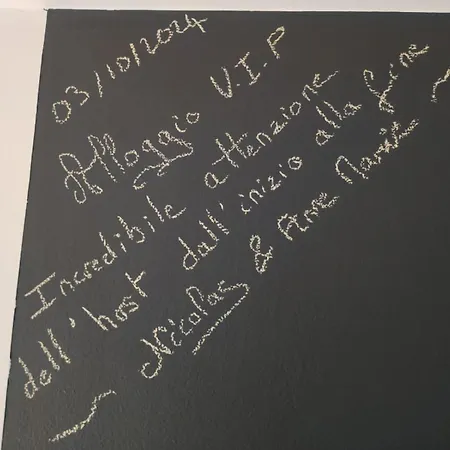 03/10/2024
Alloggio V.I.P
Incredibile attenzione
dell'host dall'inizio alla fine
Nicolas & Anne Marie